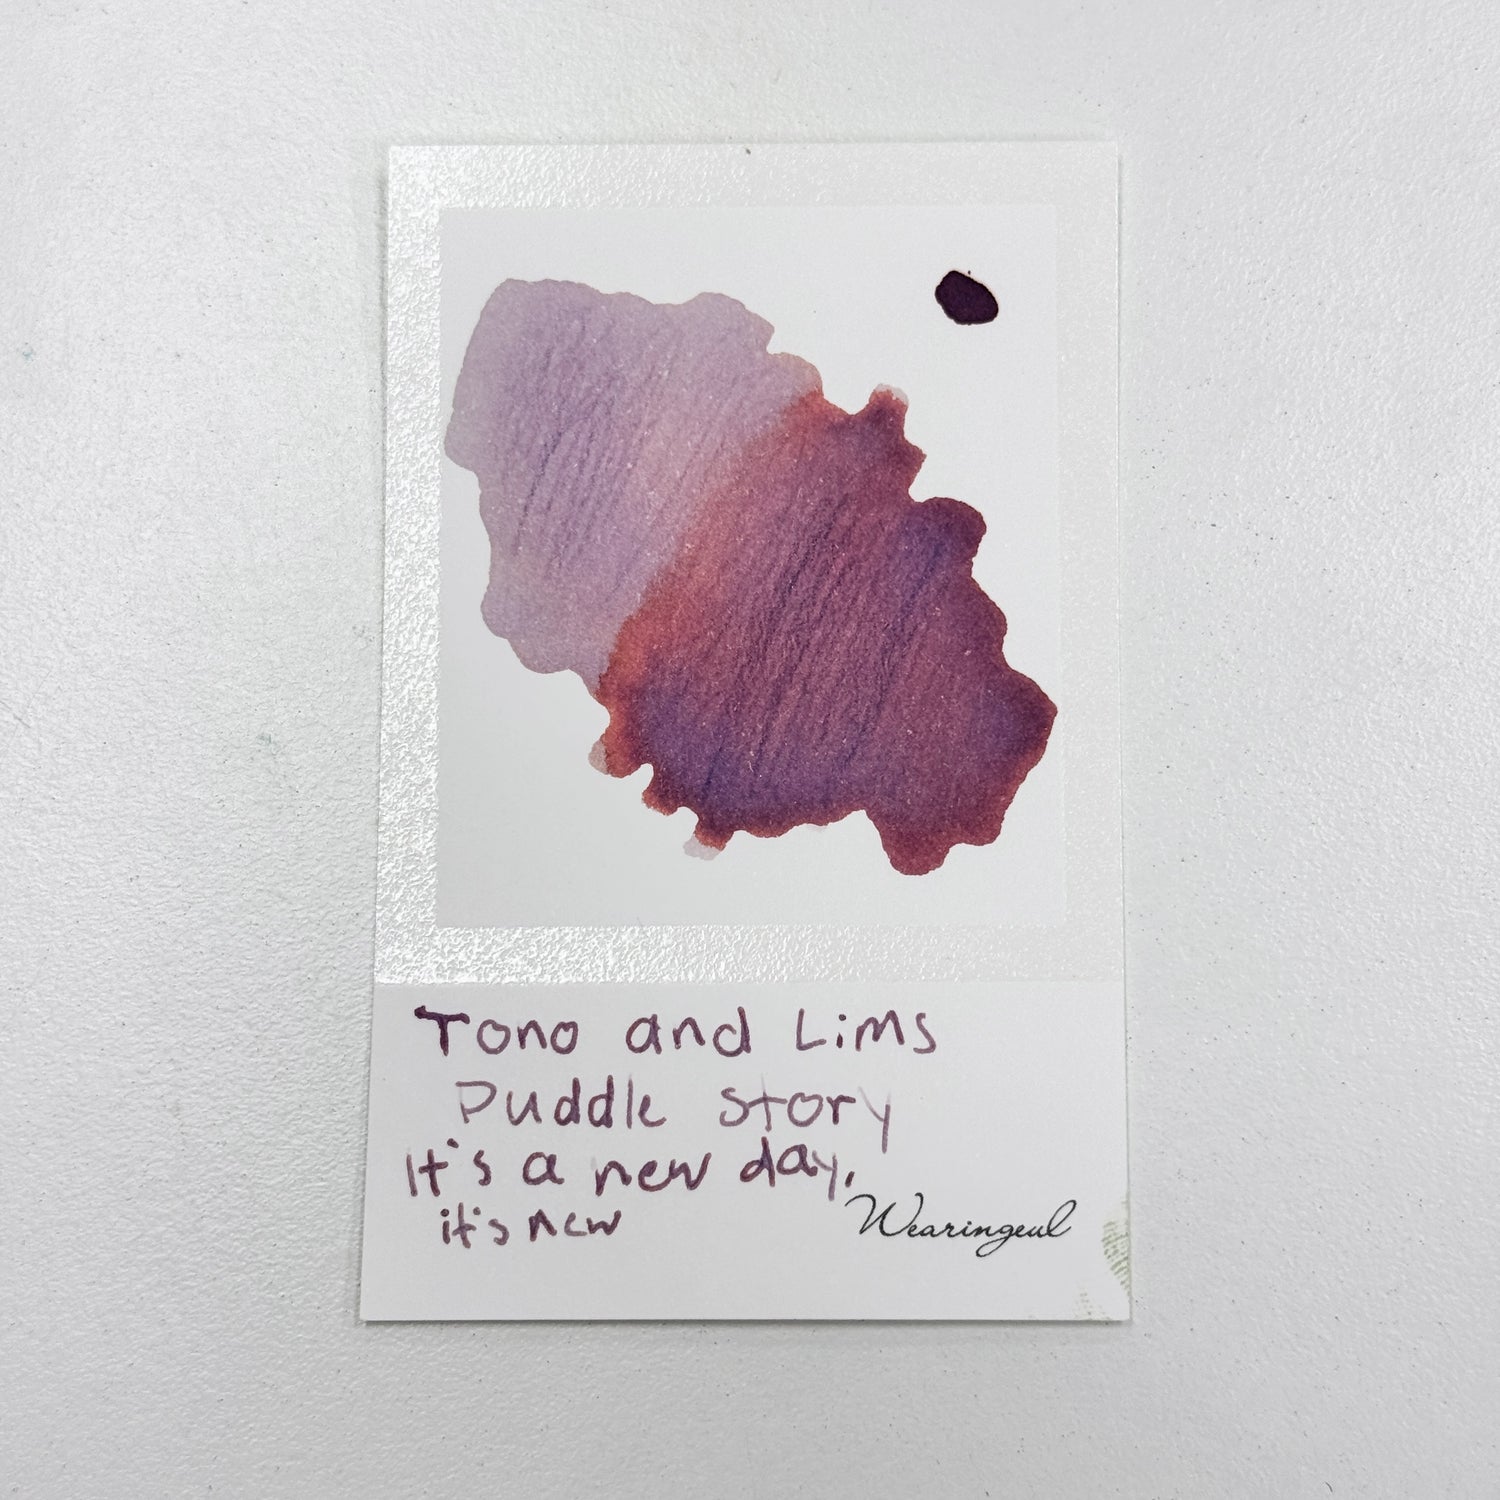 Tono and Lims
Puddle story
It's a new day,
it's new
Wearingeul